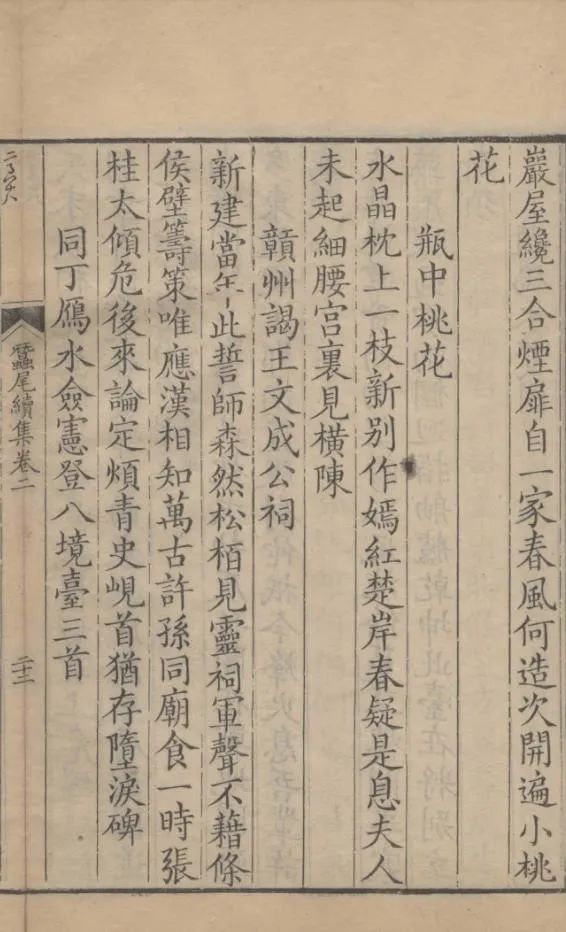 巖屋纔三合煙扉自一家春風何造次開遍小桃
花
瓶中桃花
水晶枕上一枝新別作嫣紅楚岸春疑是息夫人
未起細腰宮裏見橫陳
贛州謁王文成公祠
新建當年此誓師森然松栢見靈祠軍聲不藉條
侯壁籌策唯應漢相知萬古許孫同廟食一時張
桂太傾危後來論定煩青史峴首猶存墮淚碑
同丁鴈水僉憲登八境臺三首
蠶尾續集卷二
二十二